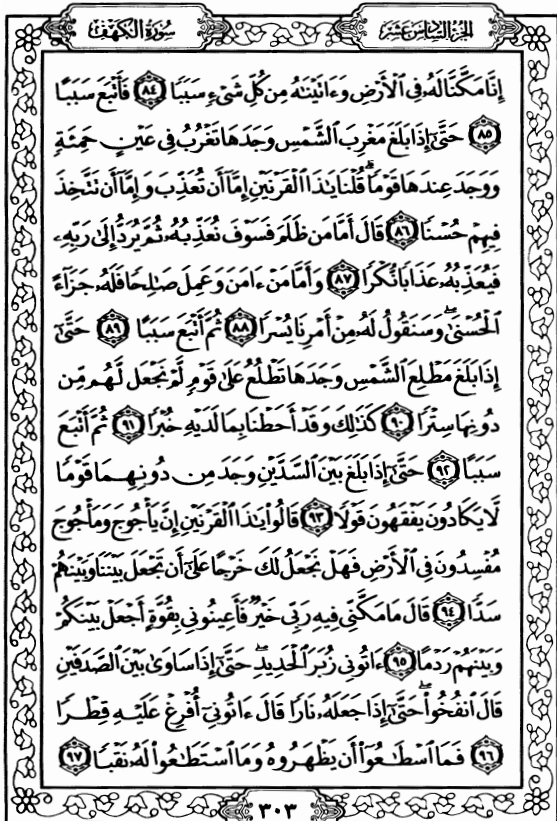 سُورَةُ الكَهۡفِ
الجُزءُ السَّادِسَ عَشَرَ
إِنَّا مَكَّنَّا لَهُۥ فِي ٱلۡأَرۡضِ وَءَاتَيۡنَٰهُ مِن كُلِّ شَيۡءٖ سَبَبٗا ٨٤ فَأَتۡبَعَ سَبَبًا
٨٥ حَتَّىٰٓ إِذَا بَلَغَ مَغۡرِبَ ٱلشَّمۡسِ وَجَدَهَا تَغۡرُبُ فِي عَيۡنٍ حَمِئَةٖ
وَوَجَدَ عِندَهَا قَوۡمٗاۖ قُلۡنَا يَٰذَا ٱلۡقَرۡنَيۡنِ إِمَّآ أَن تُعَذِّبَ وَإِمَّآ أَن تَتَّخِذَ
فِيهِمۡ حُسۡنٗا ٨٦ قَالَ أَمَّا مَن ظَلَمَ فَسَوۡفَ نُعَذِّبُهُۥ ثُمَّ يُرَدُّ إِلَىٰ رَبِّهِۦ
فَيُعَذِّبُهُۥ عَذَابٗا نُّكۡرٗا ٨٧ وَأَمَّا مَنۡ ءَامَنَ وَعَمِلَ صَٰلِحٗا فَلَهُۥ جَزَآءً
ٱلۡحُسۡنَىٰۖ وَسَنَقُولُ لَهُۥ مِنۡ أَمۡرِنَا يُسۡرٗا ٨٨ ثُمَّ أَتۡبَعَ سَبَبًا ٨٩ حَتَّىٰٓ
إِذَا بَلَغَ مَطۡلِعَ ٱلشَّمۡسِ وَجَدَهَا تَطۡلُعُ عَلَىٰ قَوۡمٖ لَّمۡ نَجۡعَل لَّهُم مِّن
دُونِهَا سِتۡرٗا ٩٠ كَذَٰلِكَ وَقَدۡ أَحَطۡنَا بِمَا لَدَيۡهِ خُبۡرٗا ٩١ ثُمَّ أَتۡبَعَ
سَبَبًا ٩٢ حَتَّىٰٓ إِذَا بَلَغَ بَيۡنَ ٱلسَّدَّيۡنِ وَجَدَ مِن دُونِهِمَا قَوۡمٗا
لَّا يَكَادُونَ يَفۡقَهُونَ قَوۡلٗا ٩٣ قَالُواْ يَٰذَا ٱلۡقَرۡنَيۡنِ إِنَّ يَأۡجُوجَ وَمَأۡجُوجَ
مُفۡسِدُونَ فِي ٱلۡأَرۡضِ فَهَلۡ نَجۡعَلُ لَكَ خَرۡجًا عَلَىٰٓ أَن تَجۡعَلَ بَيۡنَنَا وَبَيۡنَهُمۡ
سَدّٗا ٩٤ قَالَ مَا مَكَّنِّي فِيهِ رَبِّي خَيۡرٞ فَأَعِينُونِي بِقُوَّةٍ أَجۡعَلۡ بَيۡنَكُمۡ
وَبَيۡنَهُمۡ رَدۡمًا ٩٥ ءَاتُونِي زُبَرَ ٱلۡحَدِيدِۖ حَتَّىٰٓ إِذَا سَاوَىٰ بَيۡنَ ٱلصَّدَفَيۡنِ
قَالَ ٱنفُخُواْۖ حَتَّىٰٓ إِذَا جَعَلَهُۥ نَارٗا قَالَ ءَاتُونِيٓ أُفۡرِغۡ عَلَيۡهِ قِطۡرٗا
٩٦ فَمَا ٱسۡطَٰعُوٓاْ أَن يَظۡهَرُوهُ وَمَا ٱسۡتَطَٰعُواْ لَهُۥ نَقۡبٗا ٩٧
٣٠٣